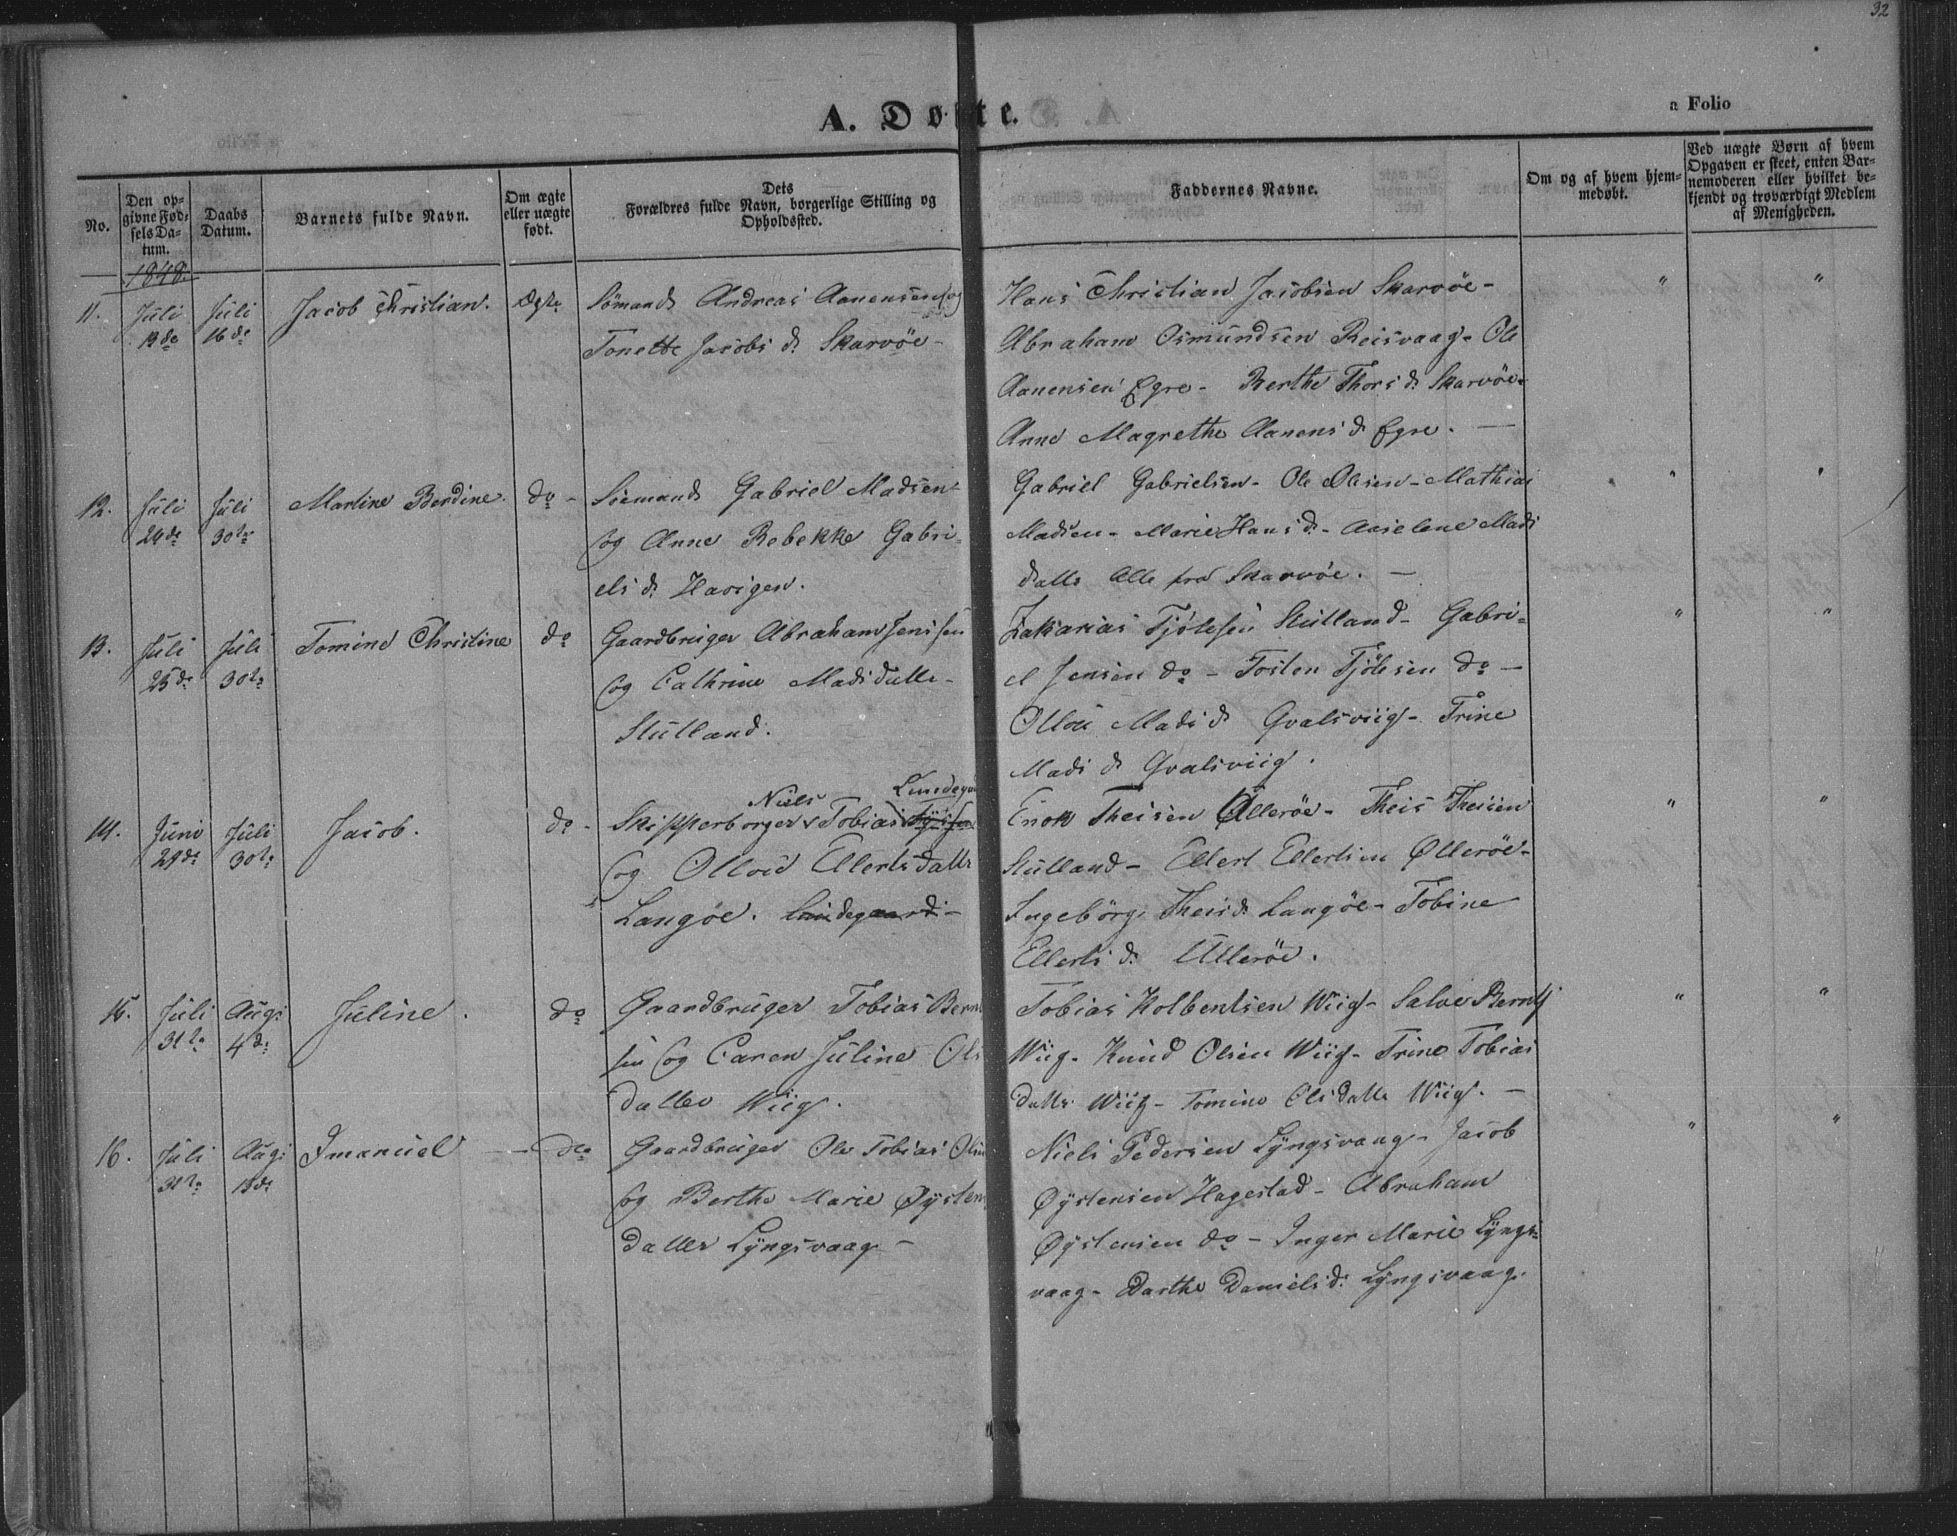 32
A. Døbte.
a Folio
No.
Den op-
givne Fød-
sels Da-
tum.
Daabs
Datum.
Barnets fulde Navn.
Om ægte
eller uægte
født.
Dets
Forældres fulde Navn, borgerlige Stilling og
Opholdssted.
Faddernes Navne.
Om og af hvem hjem-
medøbt.
Ved uægte Børn af hvem
Opgaven er skeet, enten Bar-
nemoderen eller hvilket be-
kjendt og troværdigt Medlem
af Menigheden.
1848.
11.
Juli
Juli
16de
Jacob Christian.
Ægte
Sömand Andreas Aanensen og
Tonette Jacobs d. Skarvøe -
Hans Christian Jacobsen Skarvöe -
Abraham Osmundsen Reisvaag - Ole
Aanensen Egre - Berthe Thors d. Skarvöe -
Anne Magrethe Aanens d. Egre. -
12.
Juli
24de
Juli
30te
Martine Berdine.
do -
Söemand Gabriel Madsen
og Anne Rebekke Gabri-
els d. Havigen.
Gabriel Gabrielsen - Ole Olesen - Mathias
Madsen - Marie Hans d. - Aaselene Mads
datte Alle fra Skarvöe. -
13.
Juli
25de
Juli
30te
Tomine Christine
do
Gaardbruger Abraham Jenssen
og Cathrine Madsdatte -
Stulland.
Zakarias Tjölesen Stulland - Gabri-
el Jensen do - Tosten Tjölesen do -
Mads d. Qvalsviig - Trine
Mads d. Qvalsviig.
14.
Juni
29de
Juli
30te
Jacob.
do -
Niels
Skipperborger Tobias
og Ellertsdatte
Langøe. Lundegaard -
Enok Theisen Øllerøe - Theis Theisen
Stulland - Ellert Ellertsen Ølleröe -
Ingebörg Theis d. Langöe - Tobine
Ellerts d. Ullerøe.
15.
Juli
31te
Aug:
4de
Juline.
do
Gaardbruger Tobias Bernt
sen og Caren Juline Ols
datter Wiig.
Tobias Holbentsen Wiig - Salve Bernts
Wiig - Knud Olsen Wiig - Trine Tobias
datte Wiig - Tomine Olsdatte Wiig. -
16.
Juli
31te
Aug:
13de
Imanuel
do
Gaardbruger Ole Tobias Olsen
og Berthe Marie Øystens
datter Lyngsvaag -
Niels Pedersen Lyngsvaag - Jacob
Øystensen Hagestad - Abraham
Øystensen do - Inger Marie Lyngs-
vaag - Darthe Daniels d. Lyngsvaag.